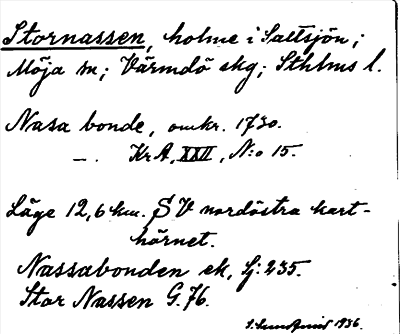 Stornassen, holme i Saltsjön;
Möja sn; Värmdö skg; Sthlms l.
Nasa bonde, omkr. 1730.
—. KrA, XXII, N:o 15.
Läge 12,6 km. SV nordöstra kart-
hörnet.
Nassabonden ek, Sj: 235.
Stor Nassen G. 76.
1936.